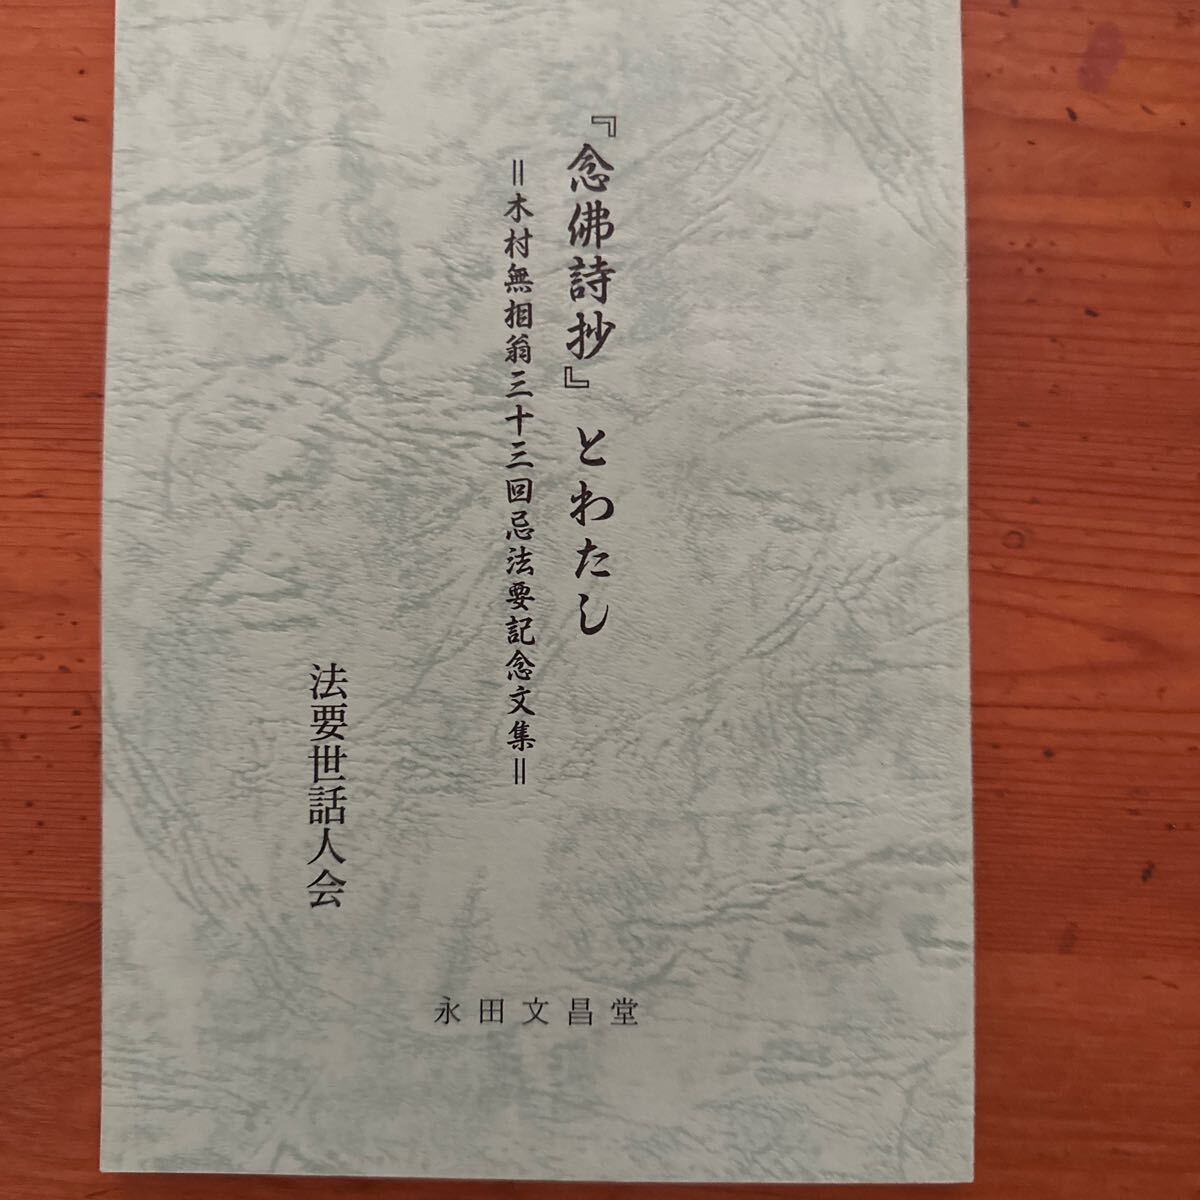 『念佛詩抄』とわたし
＝木村無相翁三十三回忌法要記念文集＝
法要世話人会
永田文昌堂